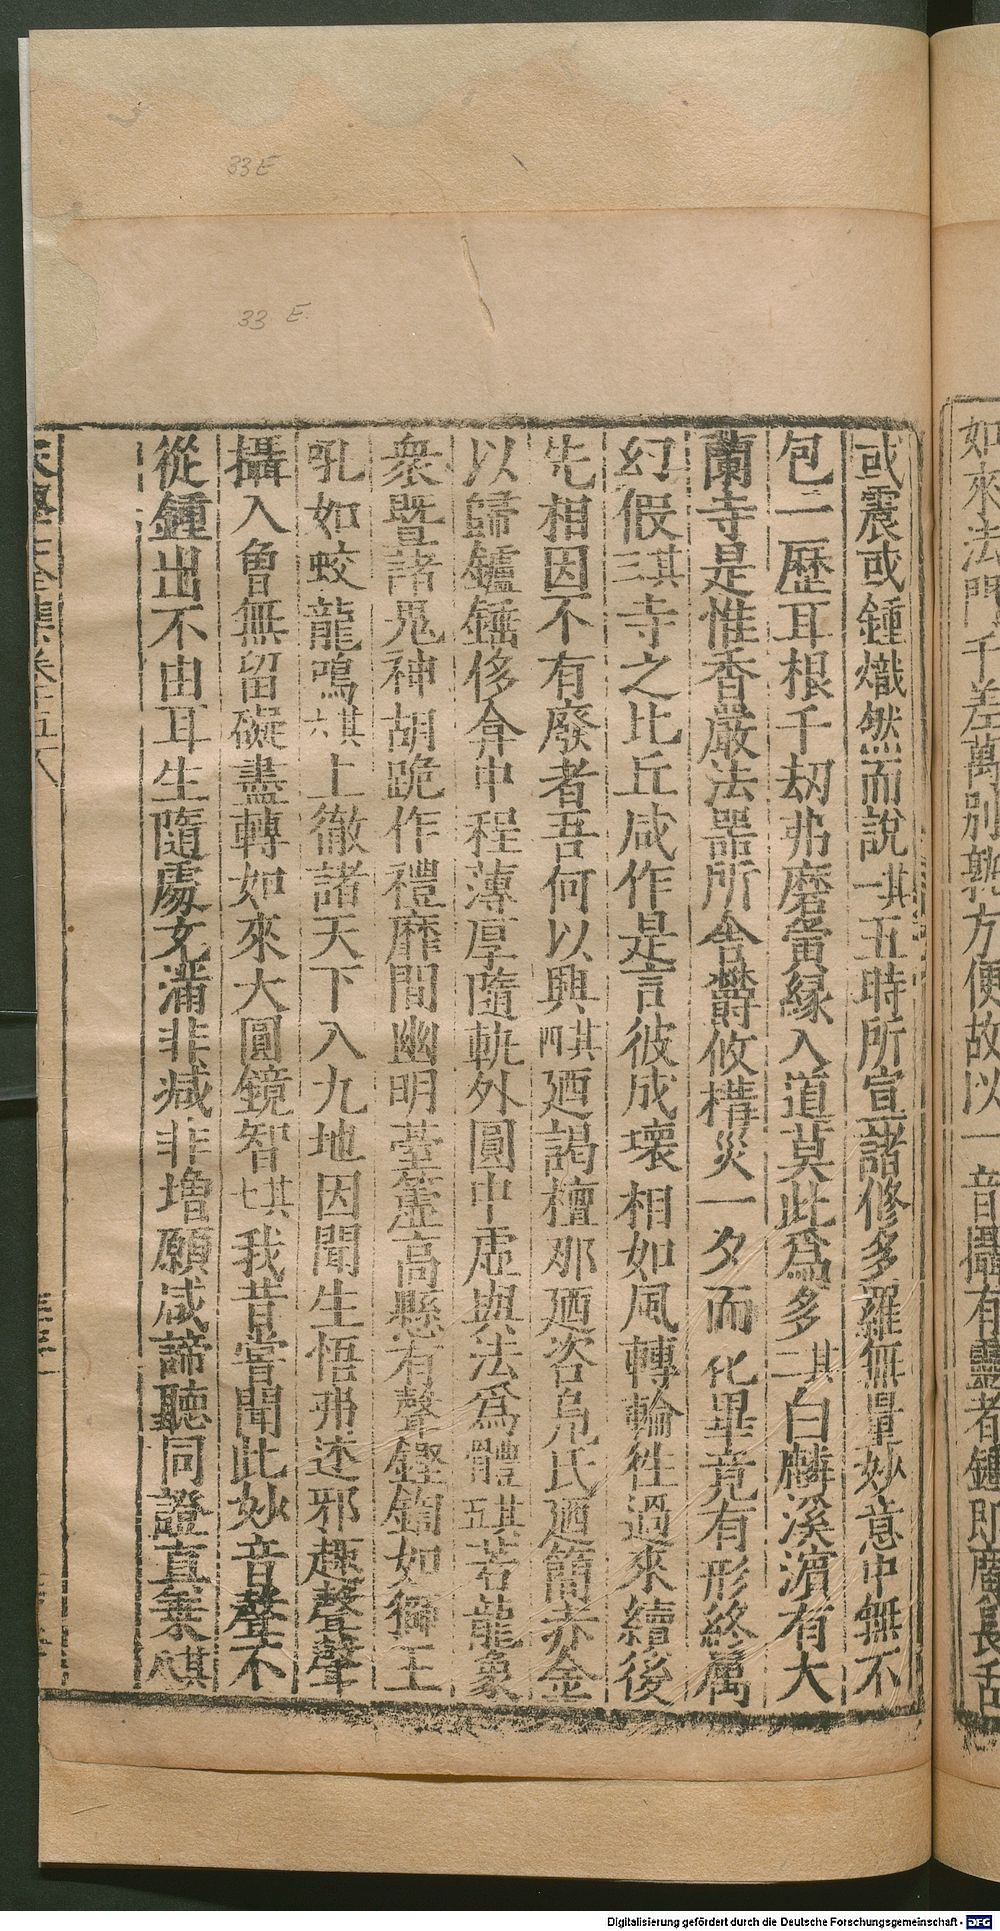 如來法門千差萬別孰方便故以一音攝有靈者鍾即廣長舌
或震或鍾熾然而說其一五時所宣諸修多羅無量妙意中無不
包二歷耳根千刼弗磨夤縁入道莫此為多其二白麟溪濵有大
蘭寺是惟香嚴法噐所舍欝攸構災一夕而化畢竟有形終屬
幻假其三寺之比丘咸作是言彼成壞相如風轉輪徃過來續後
先相因不有廢者吾何以興其四廼謁檀那廼咨鳬氏廼簡赤金
以歸鑪錘侈弇中程薄厚隨軌外圓中虛與法為體其五若龍象
衆暨諸鬼神胡跪作禮靡間幽明臺簴高懸有聲鏗鍧如獅王
吼如蛟龍鳴其六上徹諸天下入九地因聞生悟弗迷邪趣聲聲
攝入曾無留礙盡轉如來大圓鏡智其七我昔嘗聞此妙音聲不
從鍾出不由耳生隨處充滿非減非増願咸諦聽同證直乗其八
33 E
33 E.
Digitalisierung gefördert durch die Deutsche Forschungsgemeinschaft - DFG